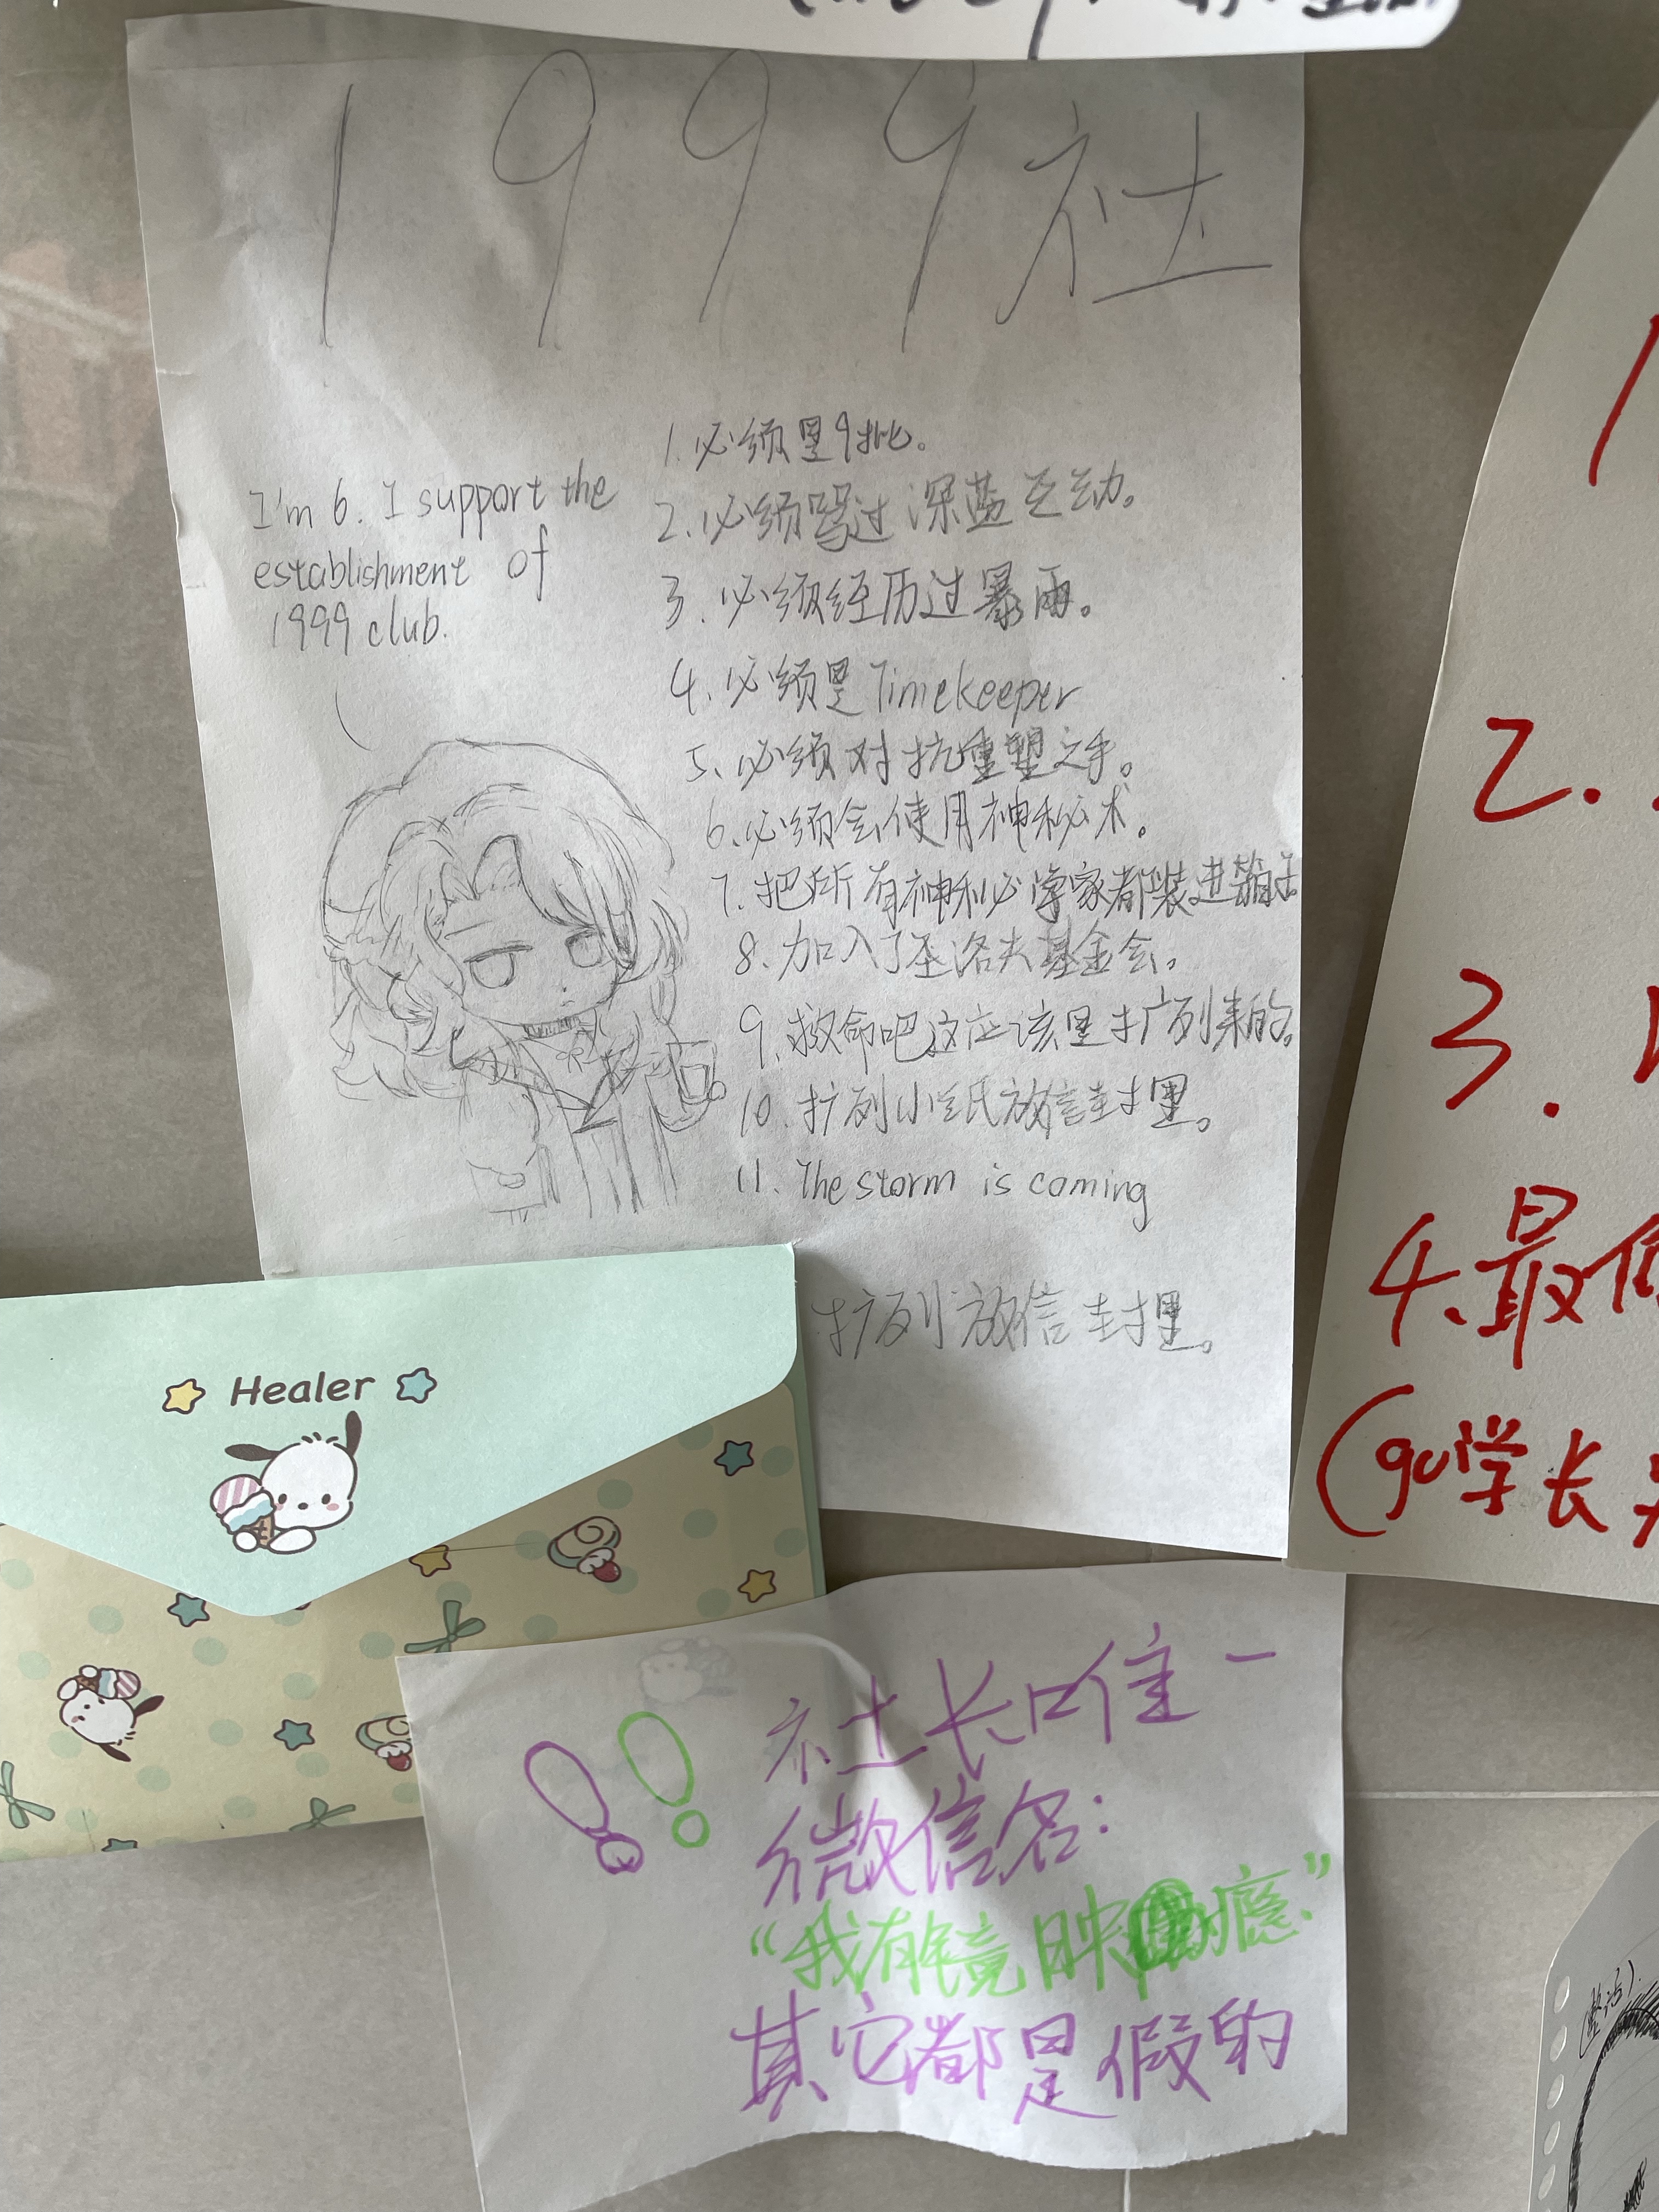 1999社
I'm 6. I support the
establishment of
1999 club.
1.必须是9批。
2.必须骂过深蓝互动。
3.必须经历过暴雨。
4.必须是Timekeeper
5.必须对抗重塑之手。
6.必须会使用神秘术。
7.把所有神秘学家都装进箱子
8.加入了圣洛夫基金会。
9.救命吧这应该是扩列来的。
10.扩列小纸放信封里。
11.The storm is coming
扩列放信封里。
Healer
社长唯一
微信名:
“我有镜映瘾”
其它都是假的
2.
3.
4.最
(gu学长